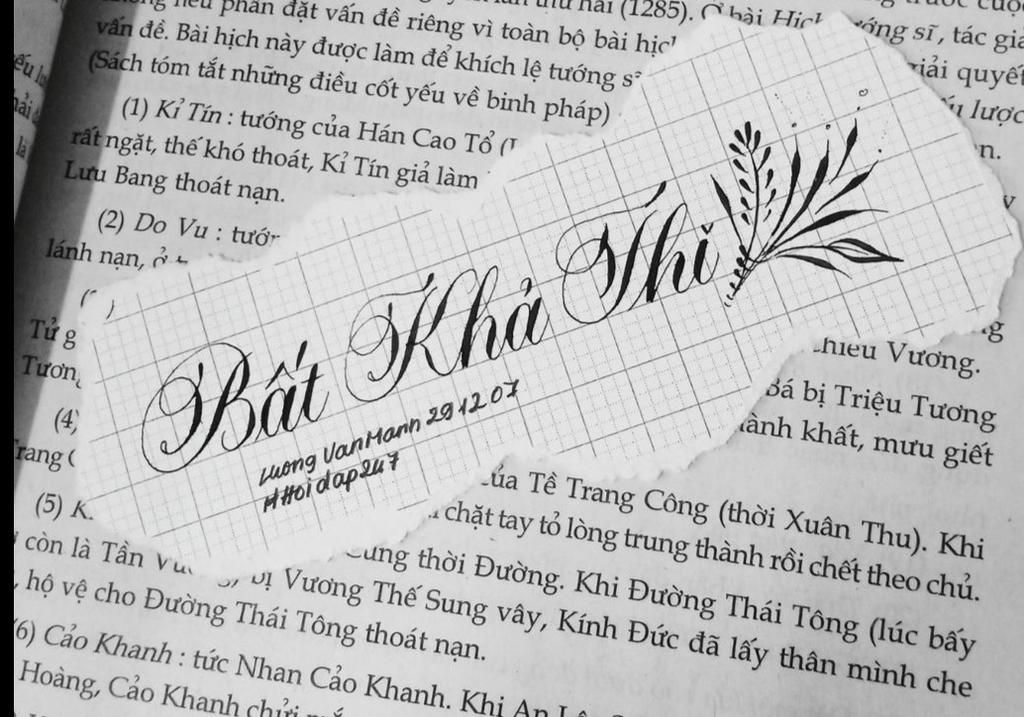 nếu phần đặt vấn đề riêng vì toàn bộ bài hịch
(1285). Ở bài Hịch tướng sĩ, tác giả
vấn đề. Bài hịch này được làm để khích lệ tướng
giải quyết
(Sách tóm tắt những điều cốt yếu về binh pháp)
lược
(1) Kỉ Tín : tướng của Hán Cao Tổ
rất ngặt, thế khó thoát, Kỉ Tín giả làm
Lưu Bang thoát nạn.
(2) Do Vu : tướng
lánh nạn, ở
Bất Khả Thi
Luong VanMann 29 12 07
#Hoidap247
Tử
Vương.
Tương
Bá bị Triệu Tương
(4)
hành khất, mưu giết
Trang
của Tề Trang Công (thời Xuân Thu). Khi
(5) K
chặt tay tỏ lòng trung thành rồi chết theo chủ.
còn là Tần Vương, bị Vương
Cung thời Đường. Khi Đường Thái Tông (lúc bấy
Thế Sung vây, Kính Đức đã lấy thân mình che
, hộ vệ cho Đường Thái Tông thoát nạn.
(6) Cảo Khanh : tức Nhan Cảo Khanh. Khi An
Hoàng, Cảo Khanh chửi